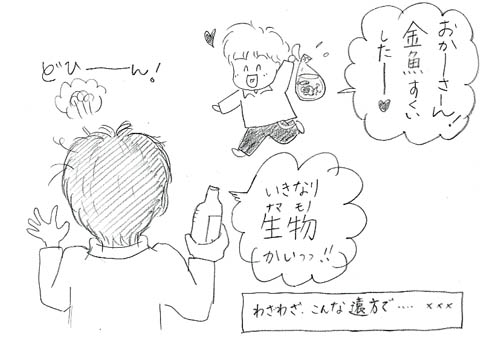 おかーさん!!
金魚すくい
したー♥
どひーーん!
いきなり
ナマモノ
生物
かいっっ!!
わざわざ、こんな遠方で‥‥ ×××